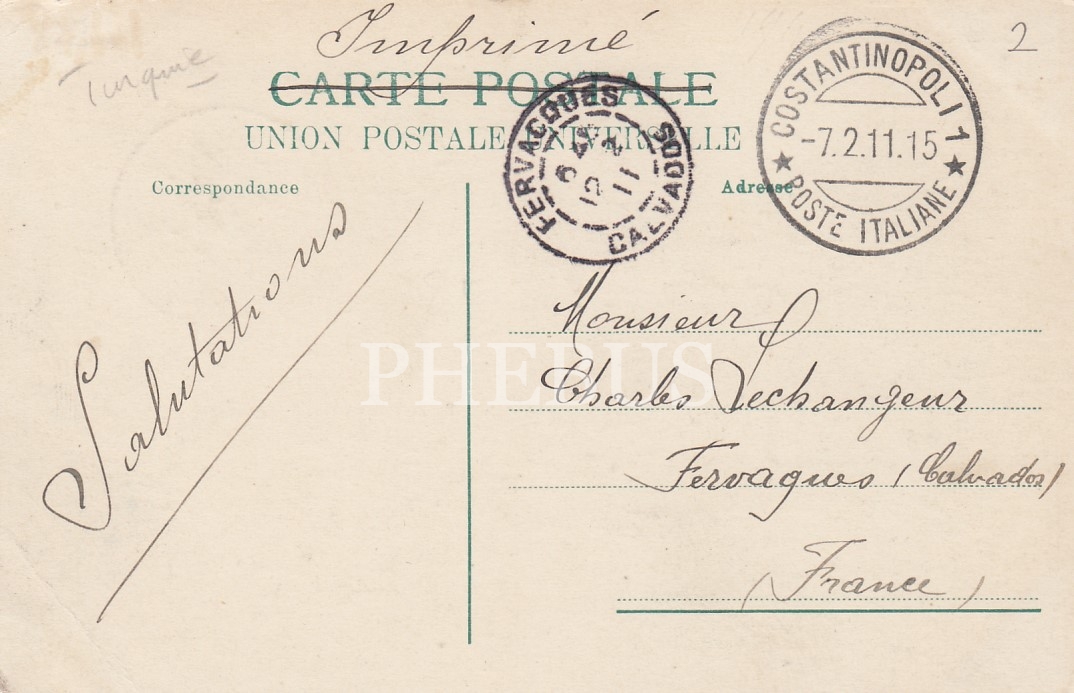 Imprimé
2
Turquie
CARTE POSTALE
UNION POSTALE UNIVERSELLE
COSTANTINOPOLI 1
-7.2.11.15
★ POSTE ITALIANE ★
FERVACQUES
CALVADOS
11
Correspondance
Adresse
Salutations
Monsieur
Charles Lechangeur
Fervaques (Calvados)
(France)
PHEBUS